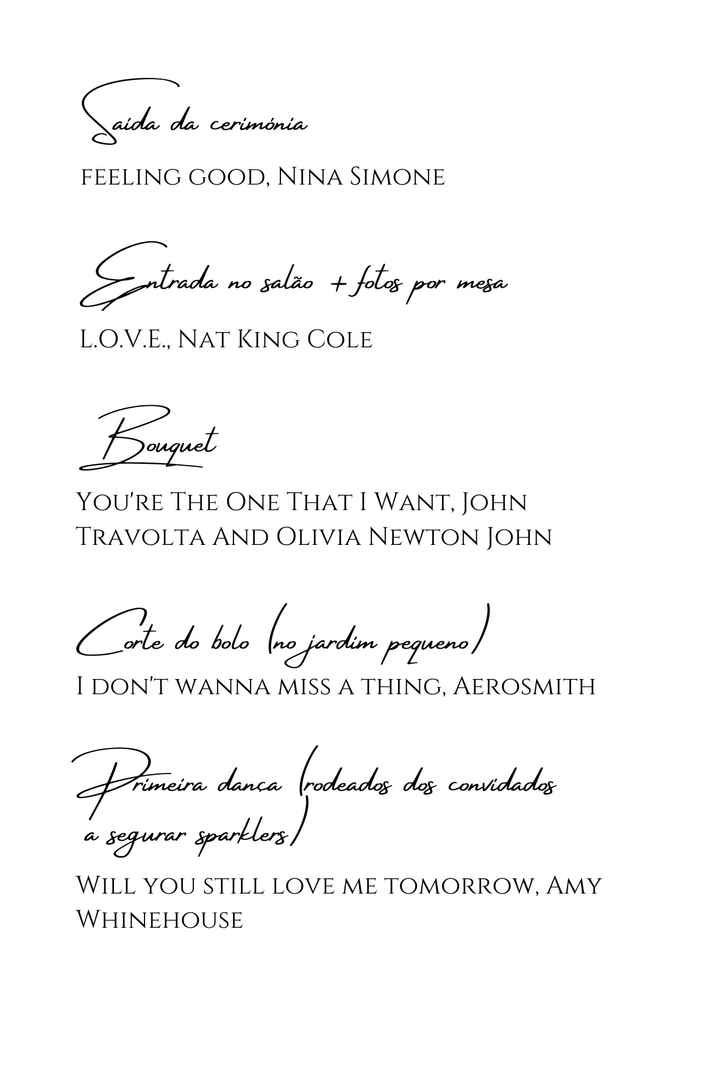 Saída da cerimónia
FEELING GOOD, NINA SIMONE
Entrada no salão + fotos por mesa
L.O.V.E., NAT KING COLE
Bouquet
YOU'RE THE ONE THAT I WANT, JOHN
TRAVOLTA AND OLIVIA NEWTON JOHN
Corte do bolo (no jardim pequeno)
I DON'T WANNA MISS A THING, AEROSMITH
Primeira dança (rodeados dos convidados
a segurar sparklers)
WILL YOU STILL LOVE ME TOMORROW, AMY
WHINEHOUSE